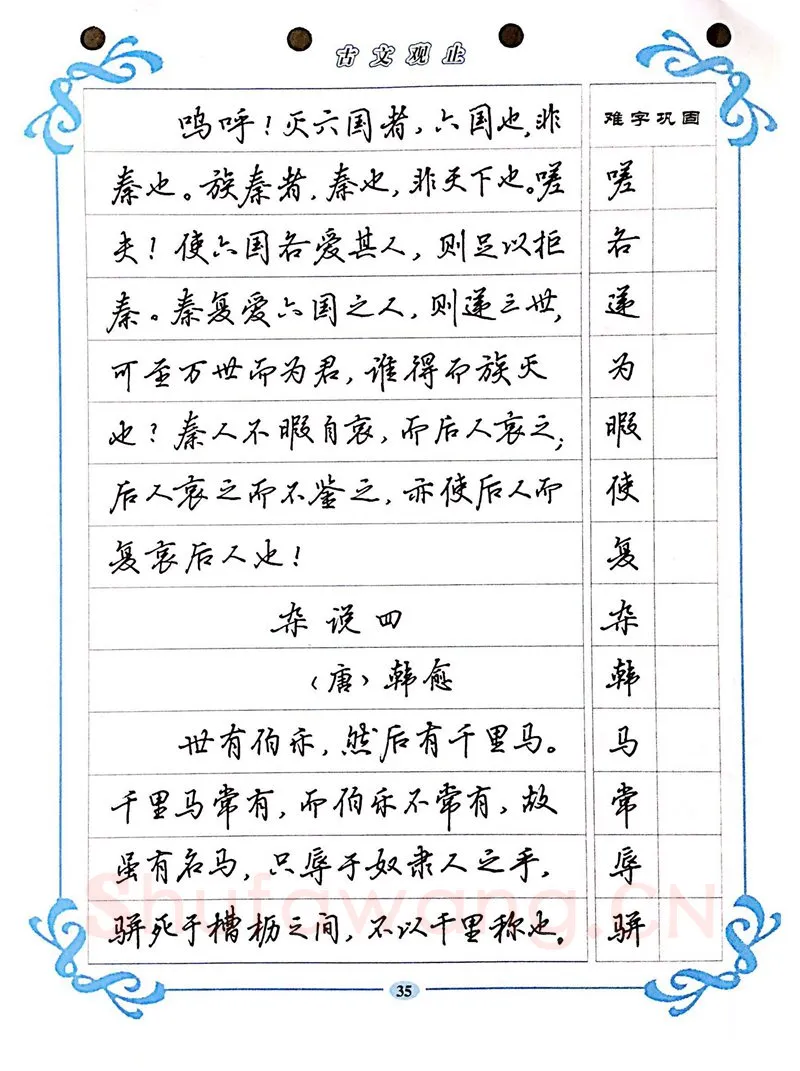 古文观止
呜呼！灭六国者，六国也，非
秦也。族秦者，秦也，非天下也。嗟
夫！使六国各爱其人，则足以拒
秦。秦复爱六国之人，则递三世，
可至万世而为君，谁得而族灭
也？秦人不暇自哀，而后人哀之；
后人哀之而不鉴之，亦使后人而
复哀后人也！
杂说四
（唐）韩愈
世有伯乐，然后有千里马。
千里马常有，而伯乐不常有，故
虽有名马，只辱于奴隶人之手，
骈死于槽枥之间，不以千里称也。
难字巩固
嗟
各
递
为
暇
使
复
杂
韩
马
常
辱
骈
Shufawang.CN
35